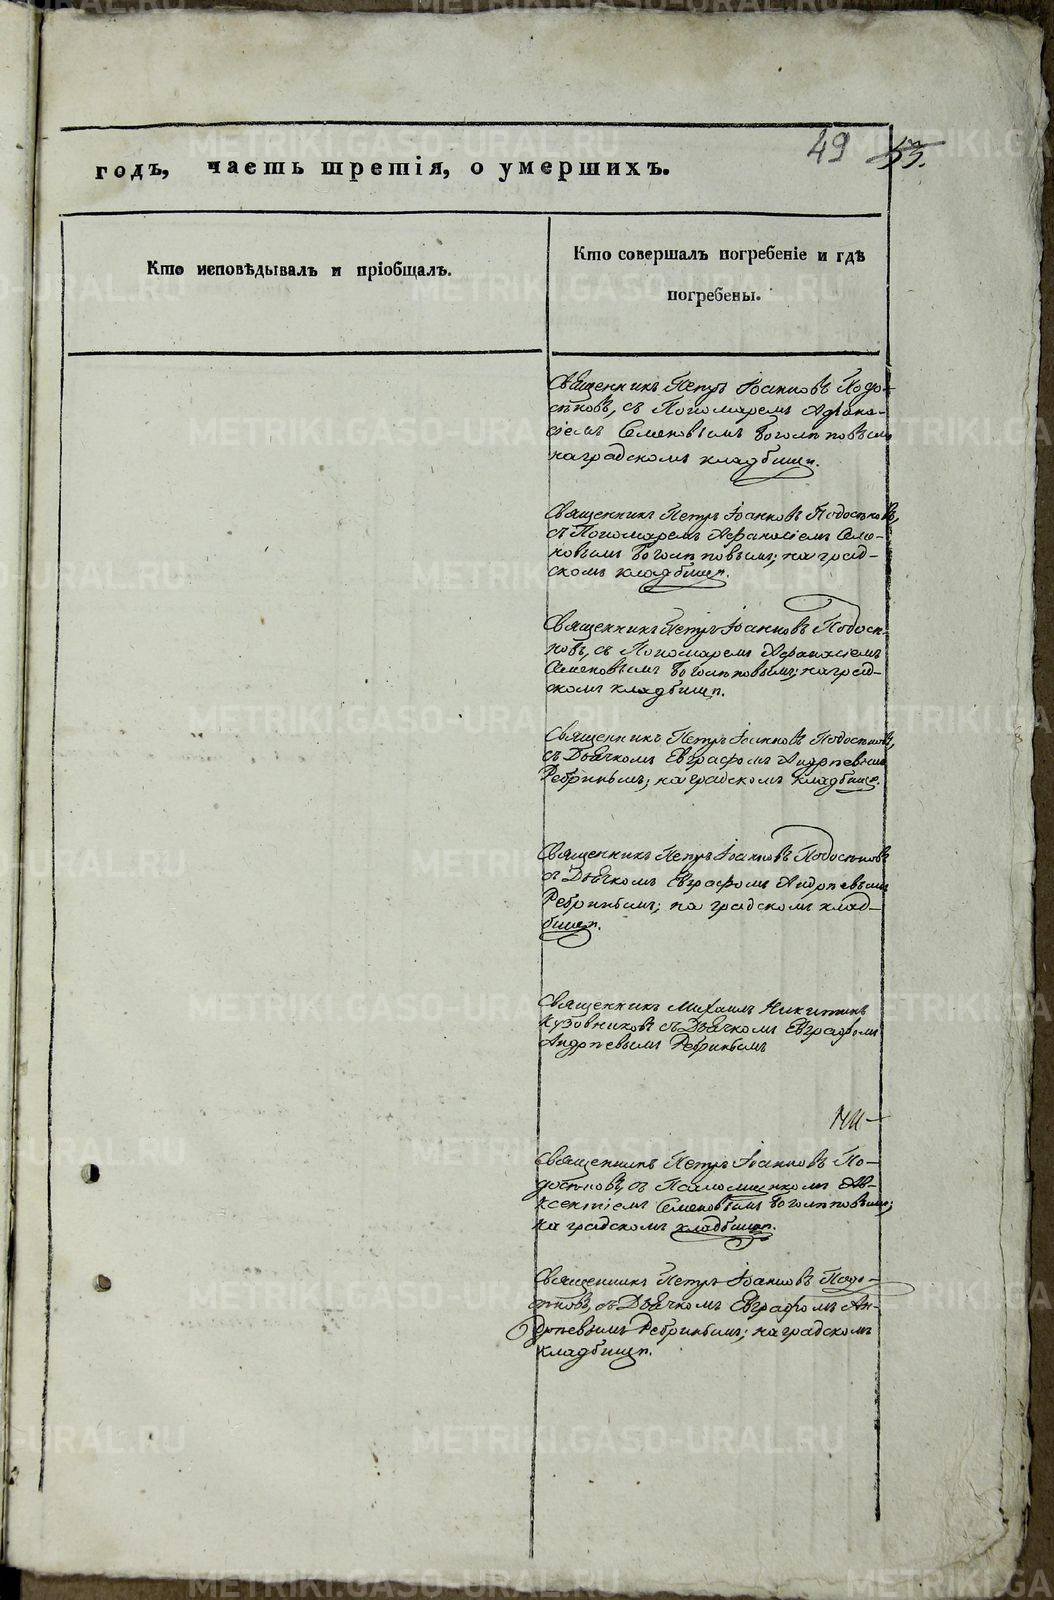 49
годъ, часть третія, о умершихъ.
Кто исповѣдывалъ и пріобщалъ.
Кто совершалъ погребеніе и гдѣ
погребены.
Священникъ Петръ Іоанновъ Подо-
сѣновъ, съ Пономаремъ Афана-
сіемъ Семеновымъ Боголѣповымъ
на градскомъ кладбищѣ.
Священникъ Петръ Іоанновъ Подосѣновъ,
съ Пономаремъ Афанасіемъ Семе-
новымъ Боголѣповымъ; на град-
скомъ кладбищѣ.
Священникъ Петръ Іоанновъ Подосѣ-
новъ, съ Пономаремъ Афанасіемъ
Семеновымъ Боголѣповымъ; на град-
скомъ кладбищѣ.
Священникъ Петръ Іоанновъ Подосѣновъ,
съ Дьячкомъ Евграфомъ Андрѣевымъ
Ребринымъ; на градскомъ кладбищѣ.
Священникъ Петръ Іоанновъ Подосѣновъ
съ Дьячкомъ Евграфомъ Андрѣевымъ
Ребринымъ; на градскомъ клад-
бищѣ.
Священникъ Михаилъ Никитинъ
Кузовниковъ съ Дьячкомъ Евграфомъ
Андрѣевымъ Ребринымъ
Священникъ Петръ Іоанновъ По-
досѣновъ, съ Паломщикомъ Ав-
ксентіемъ Семеновымъ Боголѣповымъ;
на градскомъ кладбищѣ.
Священникъ Петръ Іоанновъ Подо-
сѣновъ, съ Дьячкомъ Евграфомъ Ан-
дрѣевымъ Ребринымъ; на градскомъ
кладбищѣ.
METRIKI.GASO-URAL.RU